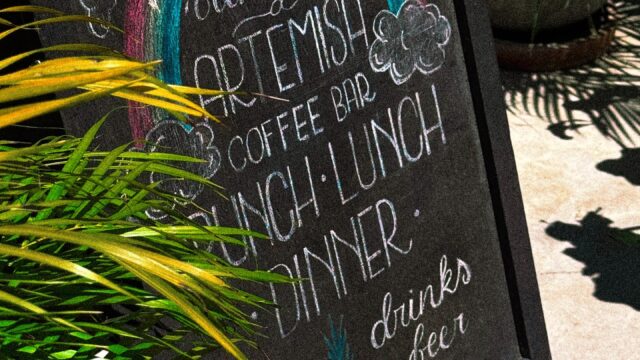 ARTEMISH
COFFEE BAR
RUNCH · LUNCH
· DINNER ·
drinks
beer